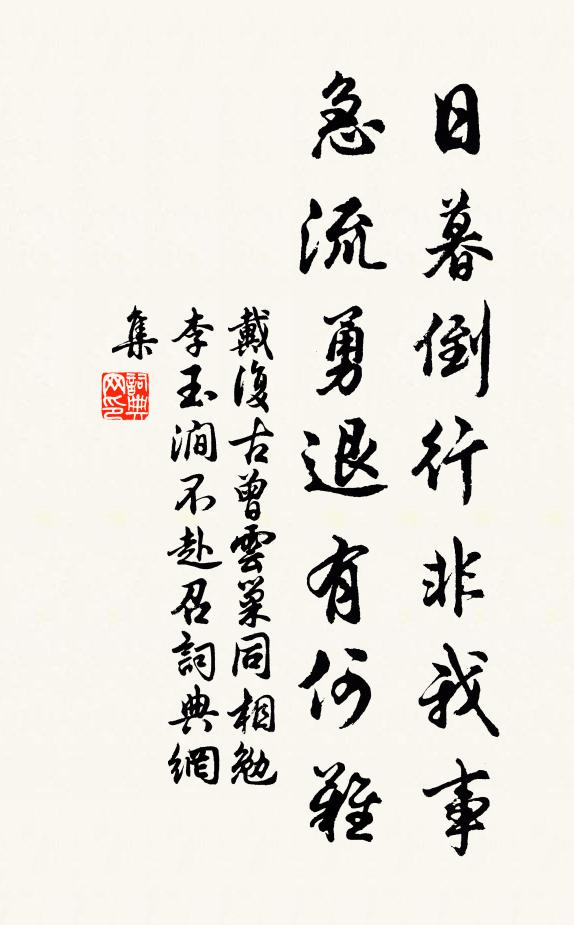 日暮倒行非我事
急流勇退有何難
戴復古曾雲巢同相勉
李玉澗不赴召詞典網
集
詞典網印